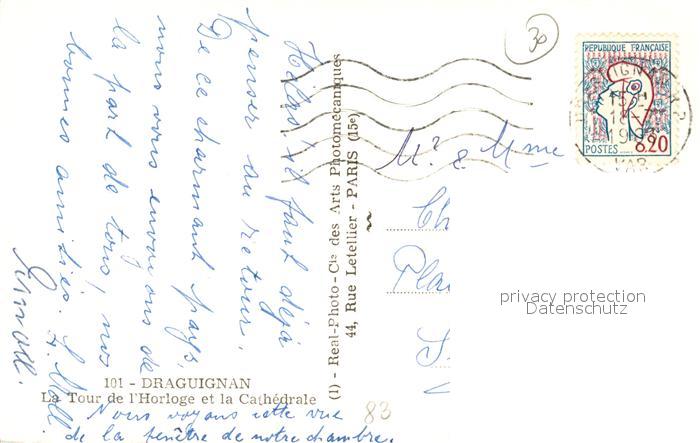 Hélas! il faut déjà
penser au retour.
De ce charmant pays,
nous vous envoyons de
la part de tous, nos
bonnes amitiés.
101 - DRAGUIGNAN
La Tour de l'Horloge et la Cathédrale
Nous voyons cette vue
de la fenêtre de notre chambre.
(1) - Real-Photo - Cie des Arts Photomécaniques
44, Rue Letellier - PARIS (15e)
30
REPUBLIQUE FRANÇAISE
POSTES 0,20
DRAGUIGNAN
VAR
Mr & Mme
Ch
Pla
83
privacy protection
Datenschutz